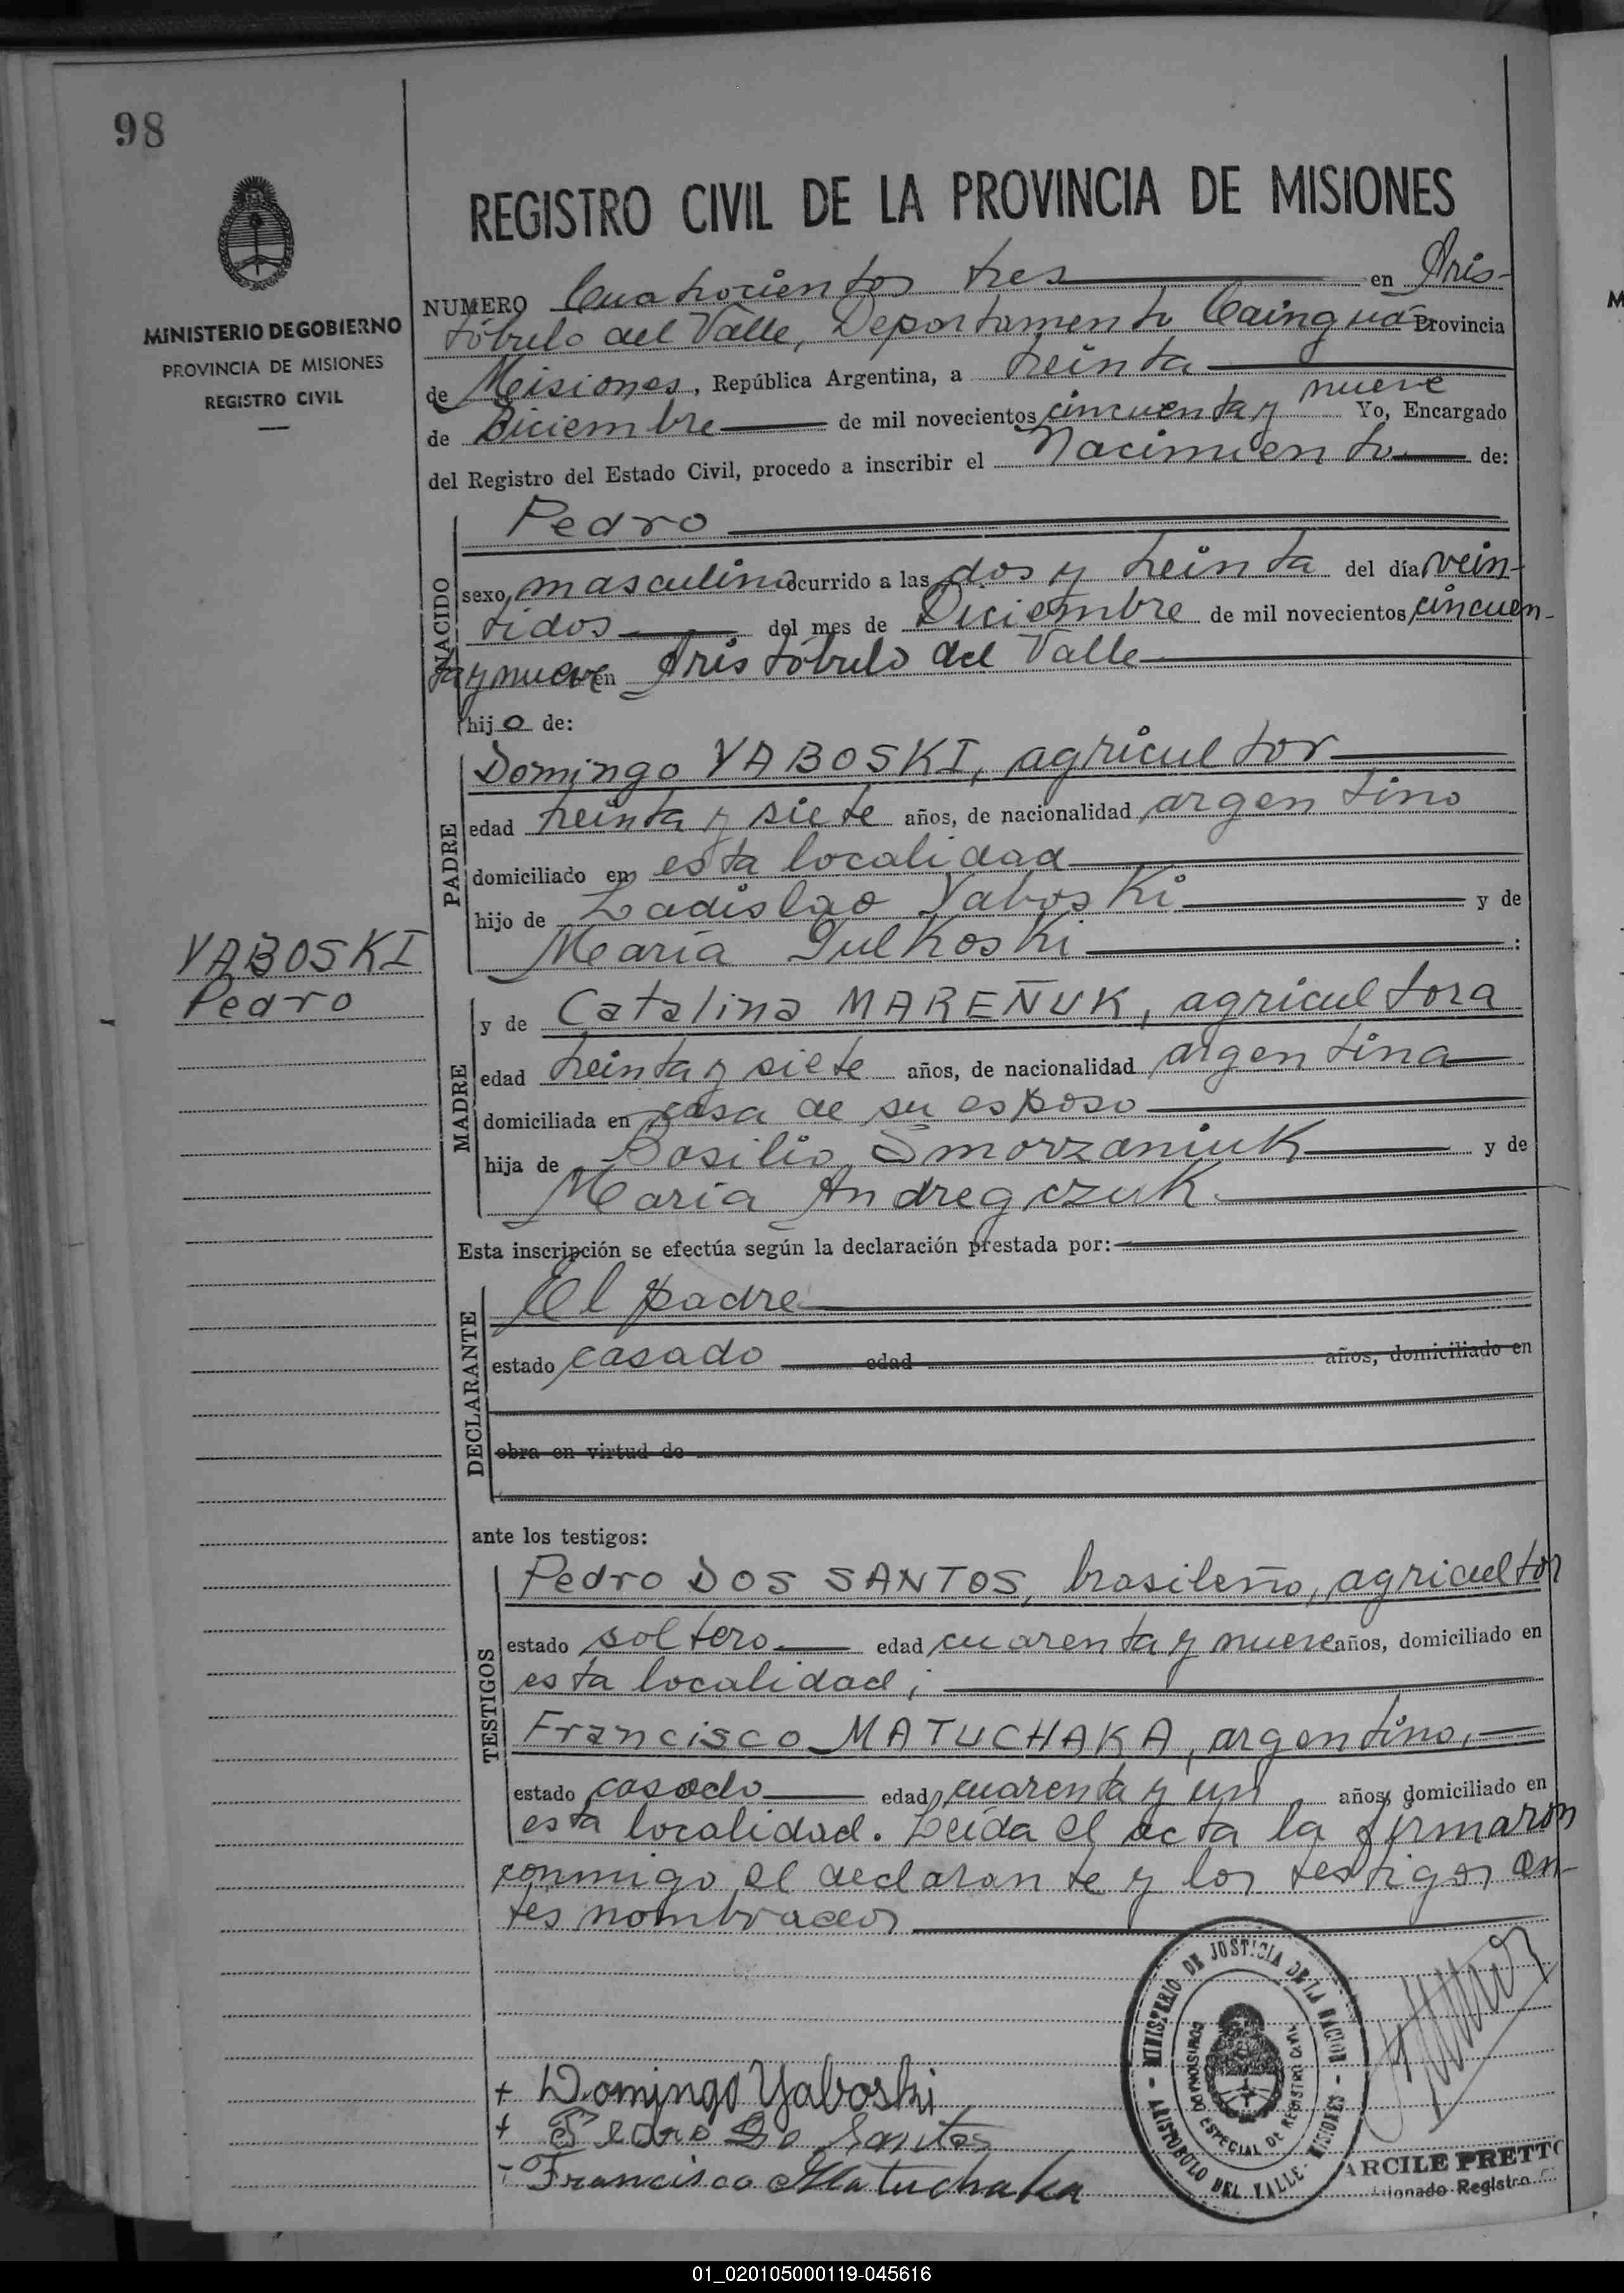 98
MINISTERIO DE GOBIERNO
PROVINCIA DE MISIONES
REGISTRO CIVIL
YABOSKI
Pedro
REGISTRO CIVIL DE LA PROVINCIA DE MISIONES
NUMERO Cuatrocientos tres en Aris-
tóbulo del Valle, Departamento Cainguás Provincia
de Misiones, República Argentina, a treinta
de Diciembre de mil novecientos cincuenta y nueve Yo, Encargado
del Registro del Estado Civil, procedo a inscribir el Nacimiento de:
NACIDO
Pedro
sexo masculino ocurrido a las dos y treinta del día vein-
tidos del mes de Diciembre de mil novecientos cincuen-
ta y nueve en Aristóbulo del Valle
hijo de:
PADRE
Domingo YABOSKI, agricultor
edad treinta y siete años, de nacionalidad argentino
domiciliado en esta localidad
hijo de Ladislao Yaboski y de
María Gulkoski :
MADRE
y de Catalina MAREÑUK, agricultora
edad treinta y siete años, de nacionalidad argentina
domiciliada en casa de su esposo
hija de Basilio Smorzaniuk y de
María Andregczuk
Esta inscripción se efectúa según la declaración prestada por:
DECLARANTE
El padre
estado casado edad años, domiciliado en
obra en virtud de
ante los testigos:
TESTIGOS
Pedro DOS SANTOS, brasileño, agricultor
estado soltero edad cuarenta y nueve años, domiciliado en
esta localidad;
Francisco MATUCHAKA, argentino,
estado casado edad cuarenta y un años, domiciliado en
esta localidad. Leída el acta la firmaron
conmigo el declarante y los testigos an-
tes nombrados
+ Domingo Yaboski
+ Pedro Do Santos
- Francisco Matuchaka
MINISTERIO DE JUSTICIA DE LA NACION
COMISIONADO ESPECIAL DE REGISTRO CIVIL
- ARISTOBULO DEL VALLE - MISIONES -
ARCILE PRETTO
ionado Registro
01_020105000119-045616